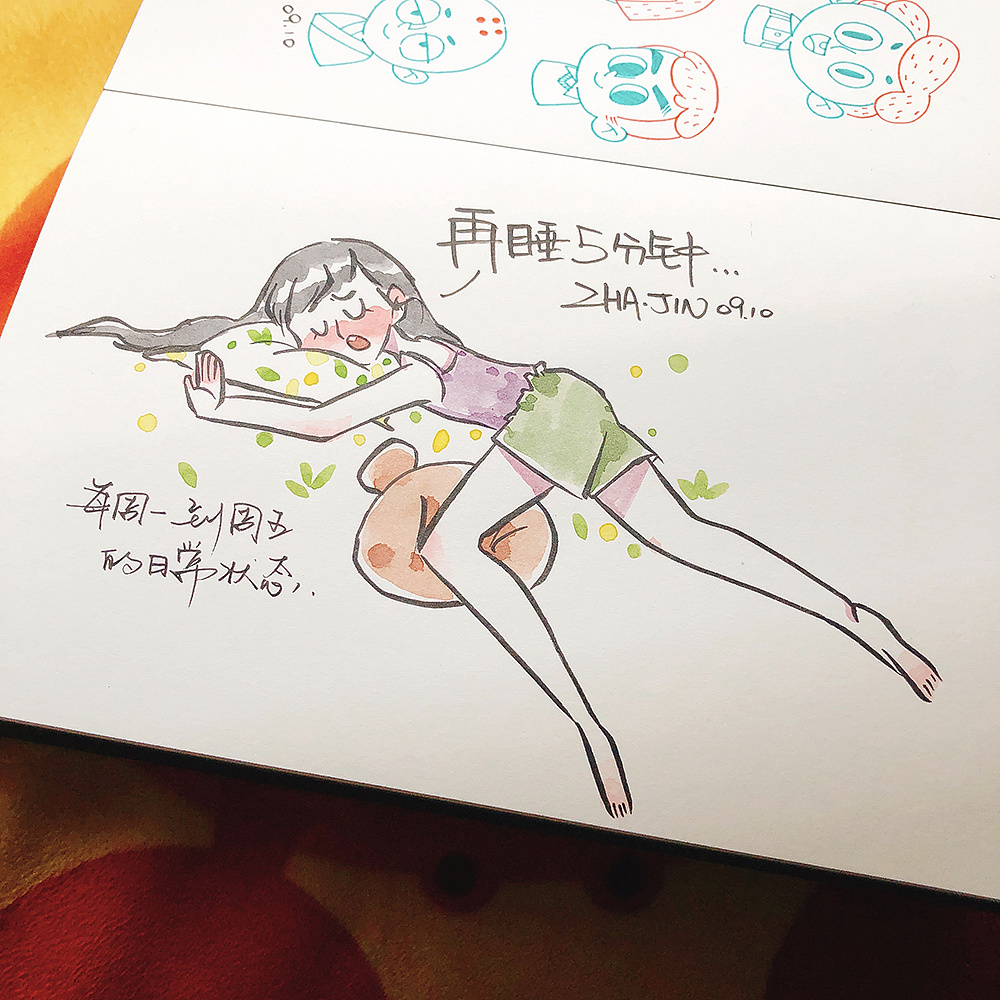 09.10
再睡5分钟...
ZHA.JIN 09.10
每周一到周五
的日常状态..